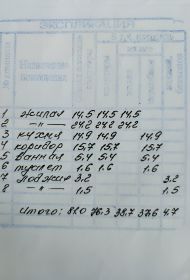 ЭКСПЛИКАЦИЯ
1 жилая 14.5 14.5 14.5
2 -"- 24.2 24.2 24.2
3 кухня 14.9 14.9 14.9
4 коридор 15.7 15.7 15.7
5 ванная 5.4 5.4 5.4
6 туалет 1.6 1.6 1.6
7 Лоджия 3.2 3.2
8 -"- 1.5 1.5
Итого: 81.0 76.3 38.7 37.6 4.7